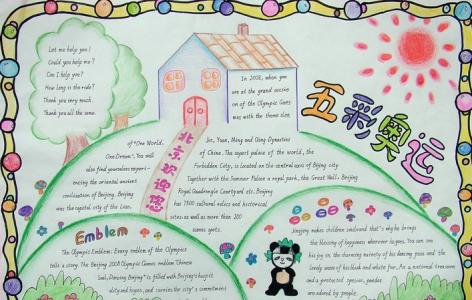 Let me help you!
Could you help me?
Can I help you?
How long is the ride?
Thank you very much.
Thank you all the same.
In 2008, when you
are at the grand session
of the Olympic Games
with the theme slogan
五彩奥运
of "One World,
One Dream". You will
also find yourselves experi-
encing the oriental ancient
civilization of Beijing. Beijing
was the capital city of the Liao,
北京欢迎您
Jin, Yuan, Ming and Qing Dynasties
of China. The ancient palace of the world, the
Forbidden City, is located on the central axis of Beijing city.
Together with the Summer Palace a royal park, the Great Wall, Beijing
Royal Quadrangle Courtyard etc. Beijing
has 7300 cultural relics and historical
sites as well as more than 200
scenic spots.
Emblem
The Olympic Emblem: Every emblem of the Olympics
tells a story. The Beijing 2008 Olympic Games emblem "Chinese
Seal, Dancing Beijing" is filled with Beijing's hospit
ality and hopes, and carries the city's commitment
Jingjing makes children smile and that's why he brings
the blessing of happiness wherever he goes. You can see
his joy in the charming naivety of his dancing pose and the
lovely wave of his black and white fur. As a national treasure
and a protected species, pandas
are adored by people